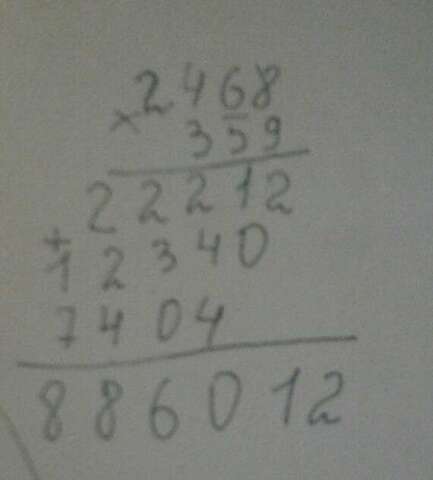 2468
× 359
22212
+ 12340
7404
886012